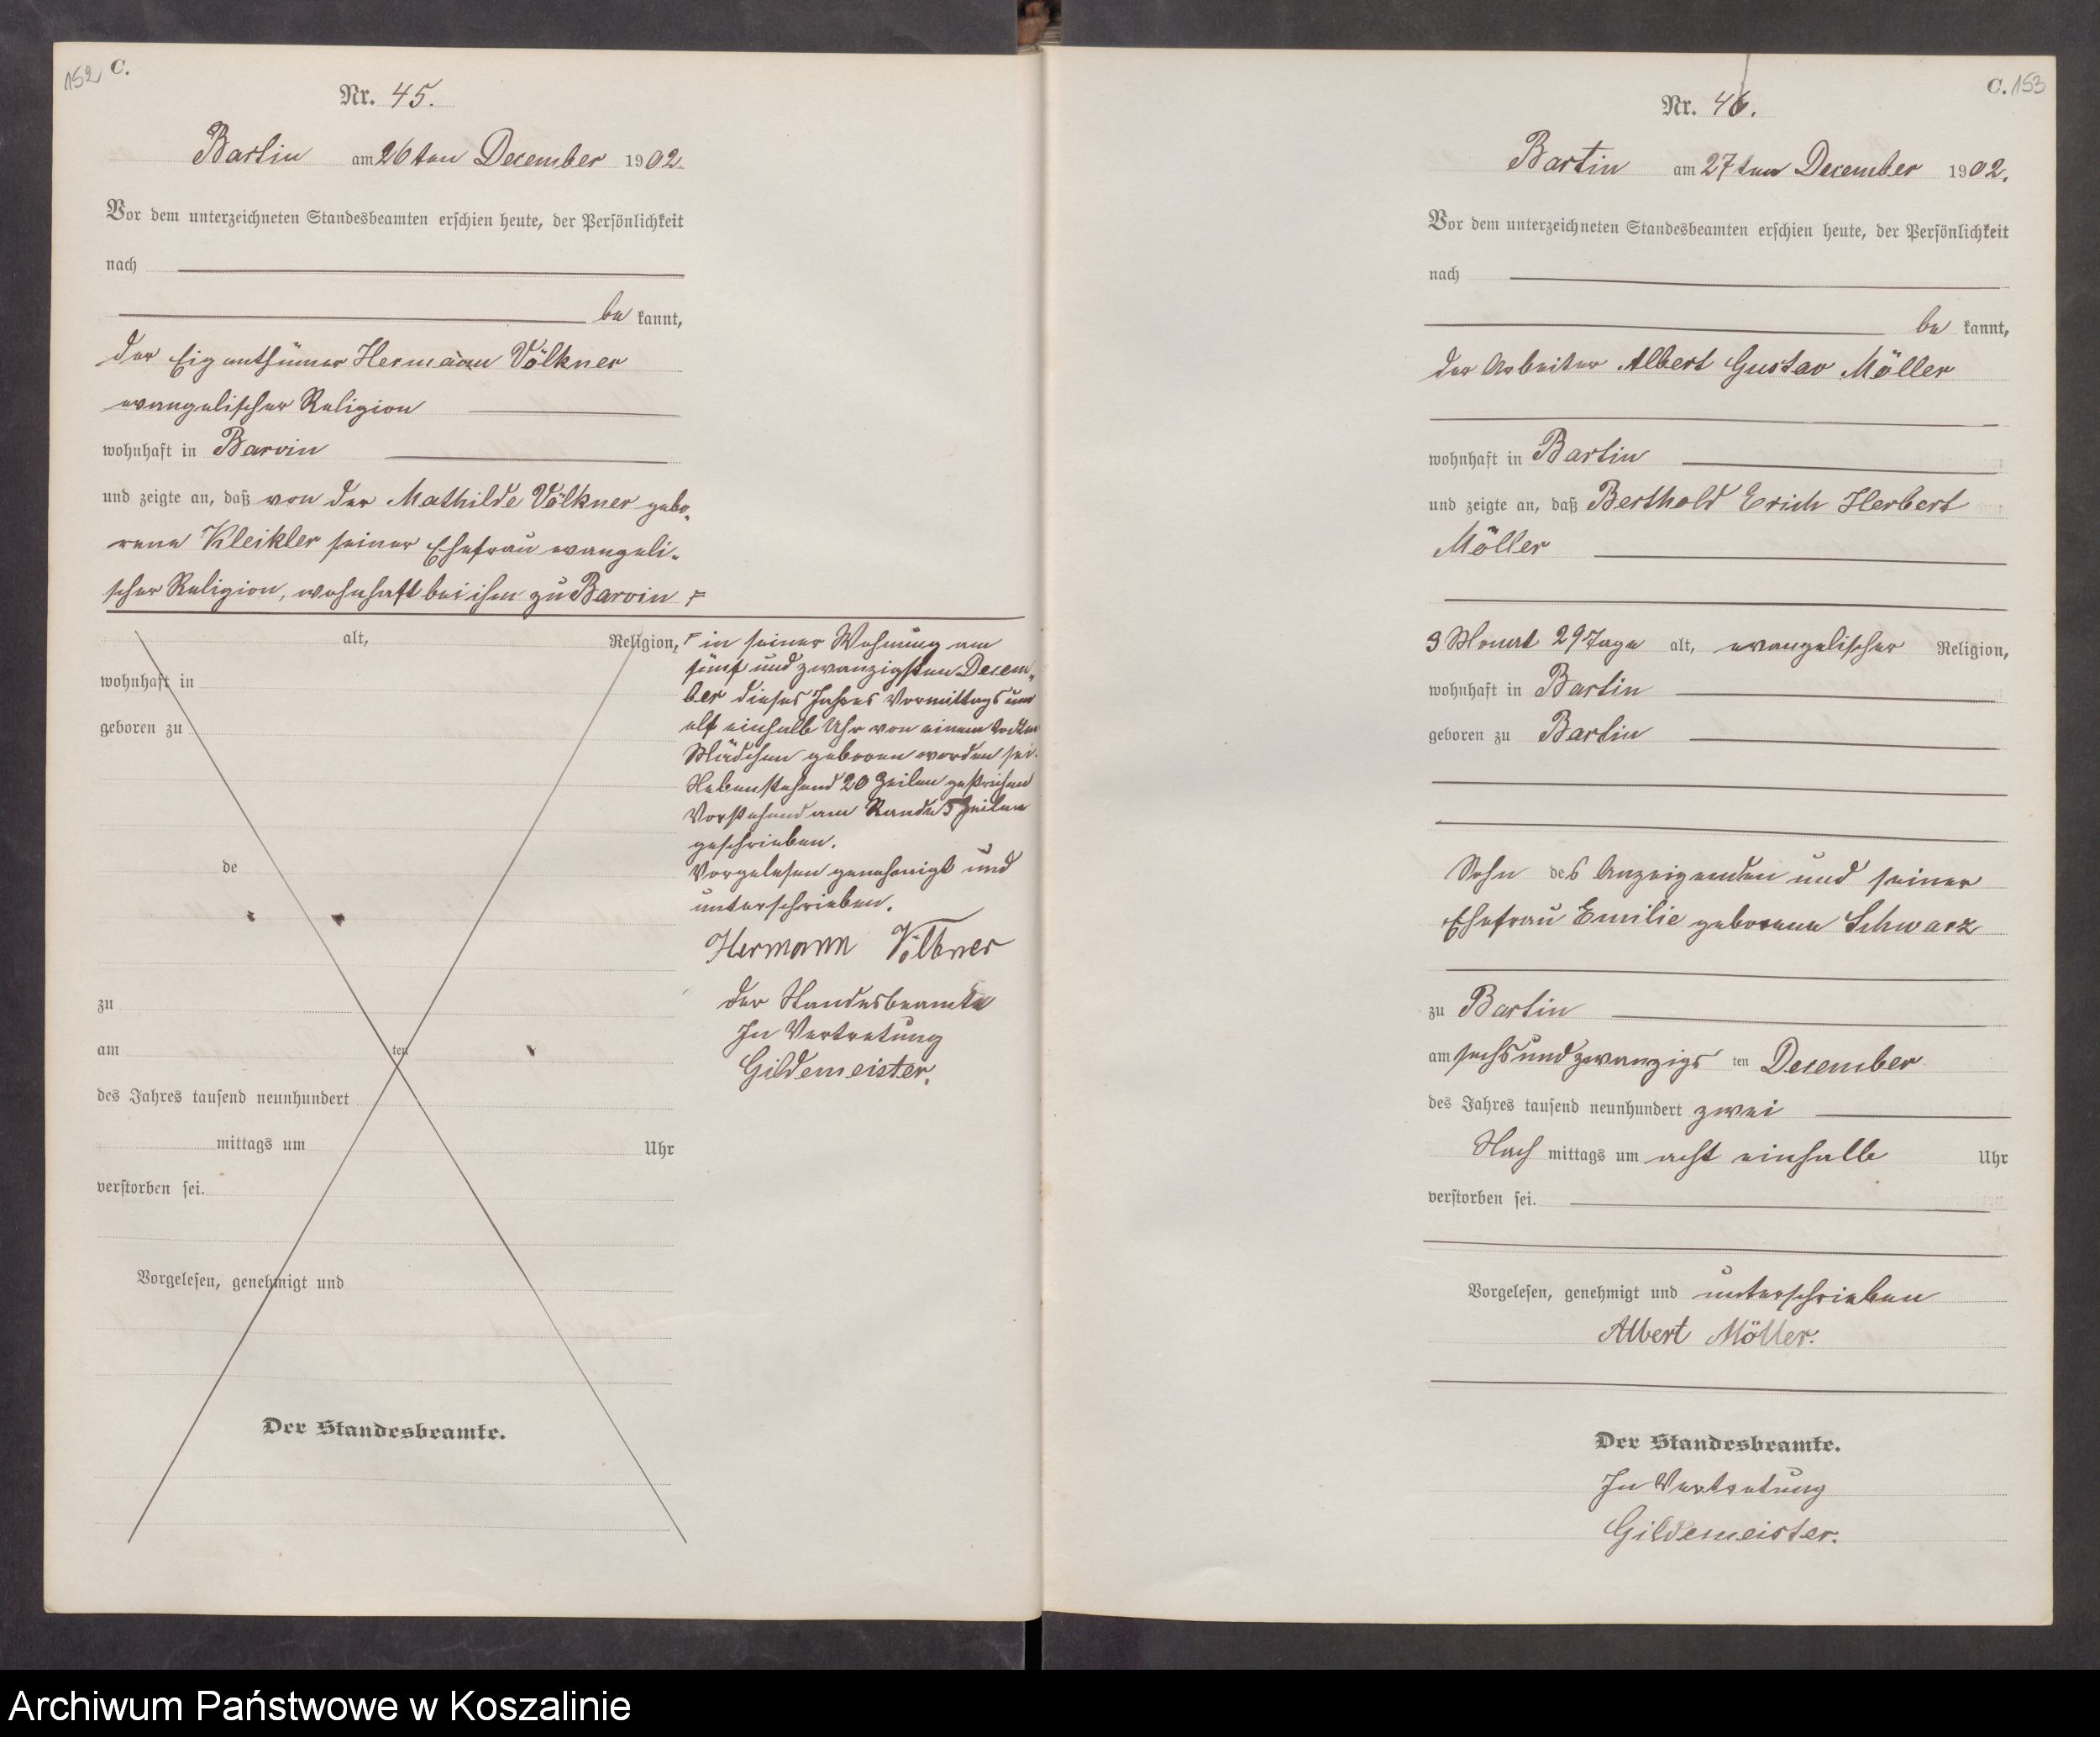 152 C.
Nr. 45.
Bartin am 26ten December 1902.
Vor dem unterzeichneten Standesbeamten erschien heute, der Persönlichkeit
nach
be kannt,
der Eigenthümer Hermann Völkner
evangelischer Religion
wohnhaft in Barvin
und zeigte an, daß von der Mathilde Völkner gebo-
rene Kleikler seiner Ehefrau evangeli-
scher Religion, wohnhaft bei ihm zu Barvin F
alt, Religion,
wohnhaft in
geboren zu
de
zu
am ten
des Jahres tausend neunhundert
mittags um Uhr
verstorben sei.
Vorgelesen, genehmigt und
Der Standesbeamte.
F in seiner Wohnung am
fünf und zwanzigsten Decem-
ber dieses Jahres Vormittags um
elf einhalb Uhr von einem todten
Mädchen geboren worden sei.
Nebenstehend 20 Zeilen gestrichen
Vorstehend am Rande 5 Zeilen
geschrieben.
Vorgelesen genehmigt und
unterschrieben.
Hermann Völkner
Der Standesbeamte
In Vertretung
Gildemeister.
C. 153
Nr. 46.
Bartin am 27ten December 1902.
Vor dem unterzeichneten Standesbeamten erschien heute, der Persönlichkeit
nach
be kannt,
der Arbeiter Albert Gustav Möller
wohnhaft in Bartin
und zeigte an, daß Berthold Erich Herbert
Möller
3 Monat 29 Tage alt, evangelischer Religion,
wohnhaft in Bartin
geboren zu Bartin
Sohn des Anzeigenden und seiner
Ehefrau Emilie geborene Schwarz
zu Bartin
am sechs und zwanzigs ten December
des Jahres tausend neunhundert zwei
Nach mittags um acht einhalb Uhr
verstorben sei.
Vorgelesen, genehmigt und unterschrieben
Albert Möller.
Der Standesbeamte.
In Vertretung
Gildemeister.
Archiwum Państwowe w Koszalinie